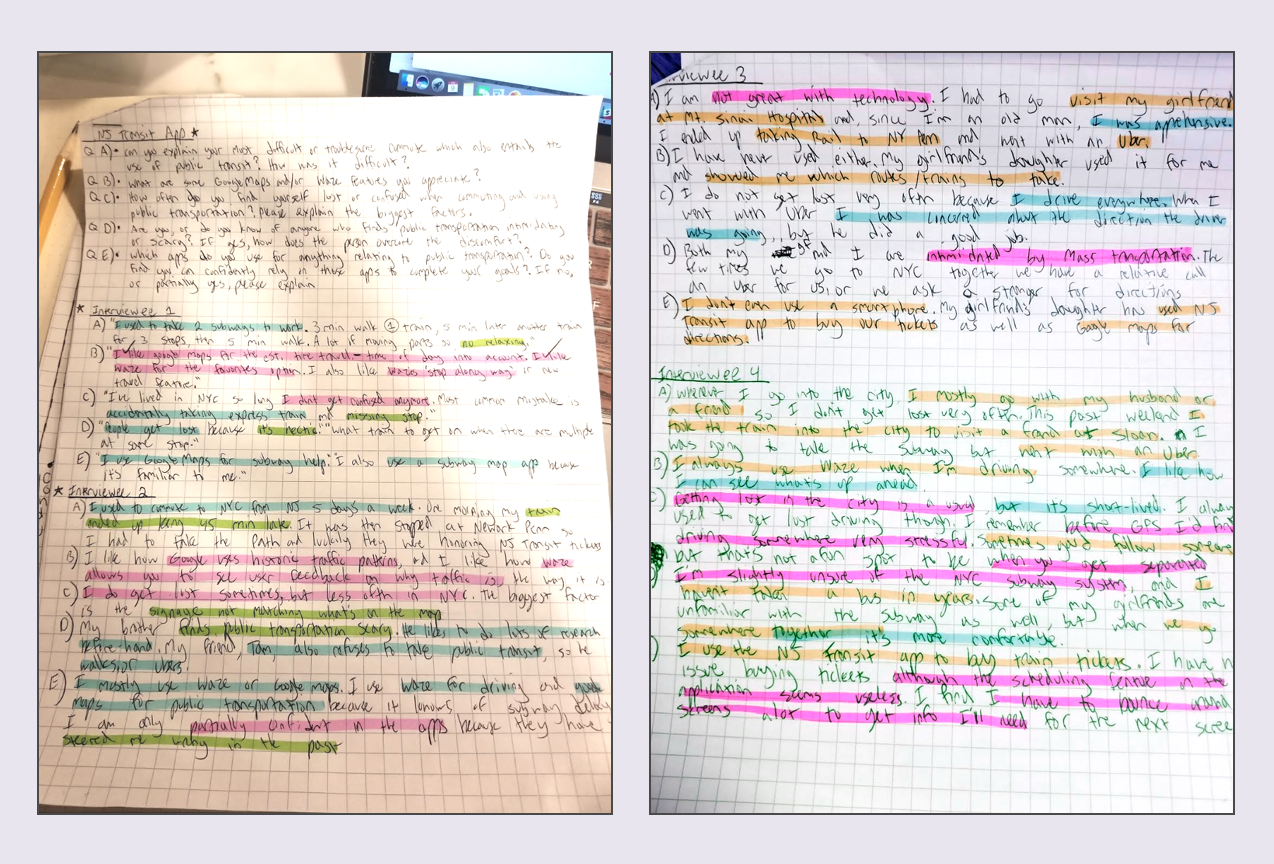 NJ Transit App ★
Q A)• Can you explain your most difficult or troublesome commute which also entails the
use of public transit? How was it difficult?
Q B)• What are some Google Maps and/or Waze features you appreciate?
Q C)• How often do you find yourself lost or confused when commuting and using
public transportation? please explain the biggest factors.
Q D)• Are you, or do you know of anyone who finds public transportation intimidating
or scary? If yes, how does the person overcome the discomfort?
Q E)• Which apps do you use for anything relating to public transportation? Do you
find you can confidently rely on these apps to complete your goals? If no,
or partially yes, please explain
★ Interviewee 1
A) "I used to take 2 subways to work. 3 min walk ① train, 5 min later another train
for 3 stops, then 5 min walk. A lot of moving parts so no relaxing."
B) "I like google maps for the est. time travel - time of day into account. I like
waze for the favorites option. I also like waze "stop along way" is new
travel feature."
C) "I've lived in NYC so long I don't get confused anymore. Most common mistake is
accidentally taking express train and missing stop."
D) "People get lost because it's hectic." "What train to get on when there are multiple
at same stop."
E) "I use Google Maps for subway help." I also use a subway map app because
it's familiar to me."
★ Interviewee 2
A) I used to commute to NYC from NJ 5 days a week. One morning my train
ended up being 45 min late. It was then stopped at Newark Penn so
I had to take the Path and luckily they were honoring NJ Transit tickets
B) I like how Google uses historic traffic patterns, and I like how waze
allows you to see user feedback on why traffic is the way it is.
C) I do get lost sometimes, but less often in NYC. The biggest factor
is the signage not matching what's on the map
D) My brother finds public transportation scary. He likes to do lots of research
before hand. My friend, Tom, also refuses to take public transit, so he
walks or ubers.
E) I mostly use Waze or Google maps. I use waze for driving and google
maps for public transportation because it knows of subway delays
I am only partially confident in the apps because they have
steered me wrong in the past
Interviewee 3
A) I am not great with technology. I had to go visit my girlfriend
at Mt. Sinai Hospital and, since I'm an old man, I was aprehensive.
I ended up taking Rail to NY Penn and went with an Uber.
B) I have never used either. My girlfriend's daughter used it for me
and showed me which routes/trains to take.
C) I do not get lost very often because I drive everywhere. When I
went with Uber I was concered about the direction the driver
was going, but he did a good job.
D) Both my GF and I are intimidated by Mass transportation. The
few times we go to NYC together we have a relative call
an Uber for us, or we ask a stranger for directions
E) I don't even use a smartphone. My girlfriend's daughter has used NJ
Transit app to buy our tickets as well as Google maps for
directions.
Interviewee 4
A) whenever I go into the city, I mostly go with my husband or
a friend so I didn't get lost very often. This past weekend I
took the train into the city to visit a friend at Sloan. I
was going to take the subway but went with an Uber
B) I always use Waze when I'm driving somewhere. I like how
I can see what's up ahead
C) Getting lost in the city is a usual, but it's short-lived. I always
used to get lost driving though. I remember before GPS I'd find
driving somewhere very stressful. Sometimes you'd follow someone
but that's not a fun spot to be when you get separated
I'm slightly unsure of the NYC subway system, and I
haven't taken a bus in years. Some of my girlfriends are
unfamiliar with the subway as well, but when we go
somewhere together it's more comfortable.
) I use the NJ Transit app to buy train tickets. I have n
issue buying tickets although the scheduling feature on the
application seems useless. I find I have to bounce around
screens alot to get info I'll need for the next scree